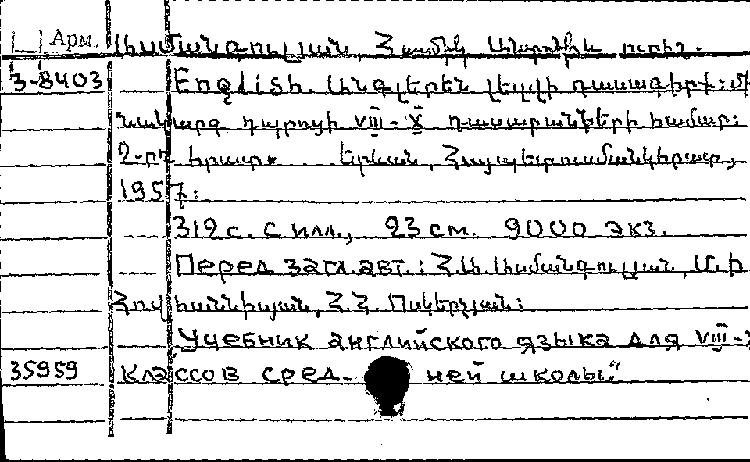 Арм. Ամանգուլյան Հասմիկ
3-8403 English. Անգլերեն լեզվի դասագիրք: Մի
նակարգ դպրոցի VIII-X դասարանների համար:
2-րդ հրատ. Երևան, Հայպետուսմանկհրատ,
1957:
312 с. с илл., 23 см. 9000 экз.
Перед загл. авт.: Հ. Ա. Ամանգուլյան, Մ. Ի.
Հովհաննիսյան, Հ. Հ. Ոսկերչյան:
Учебник английского языка для VIII-
35959 классов сред- ней школы."